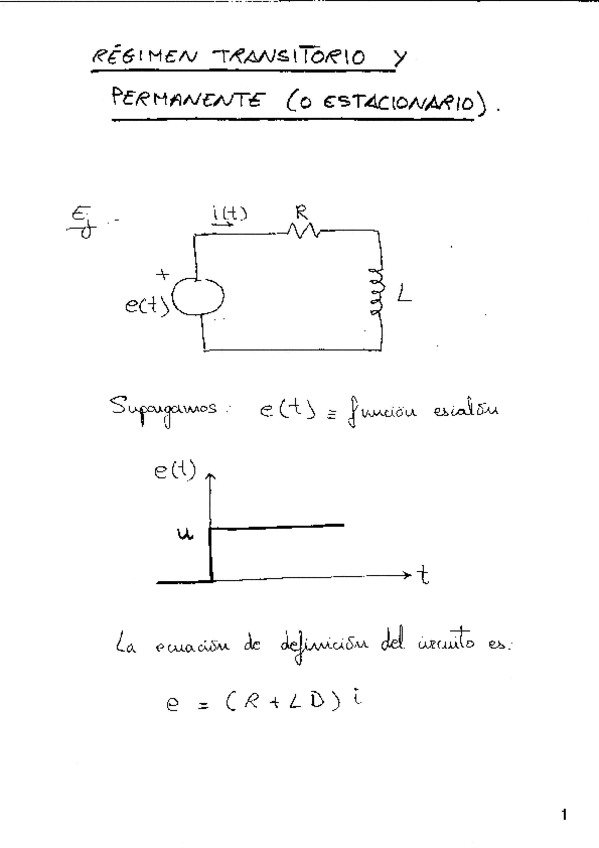 RÉGIMEN TRANSITORIO Y
PERMANENTE (O ESTACIONARIO).
Ej.-
i(t)
R
+
e(t)
L
Supongamos: e(t) ≡ función escalón
e(t)
u
t
La ecuación de definición del circuito es:
e = (R + LD) i
1